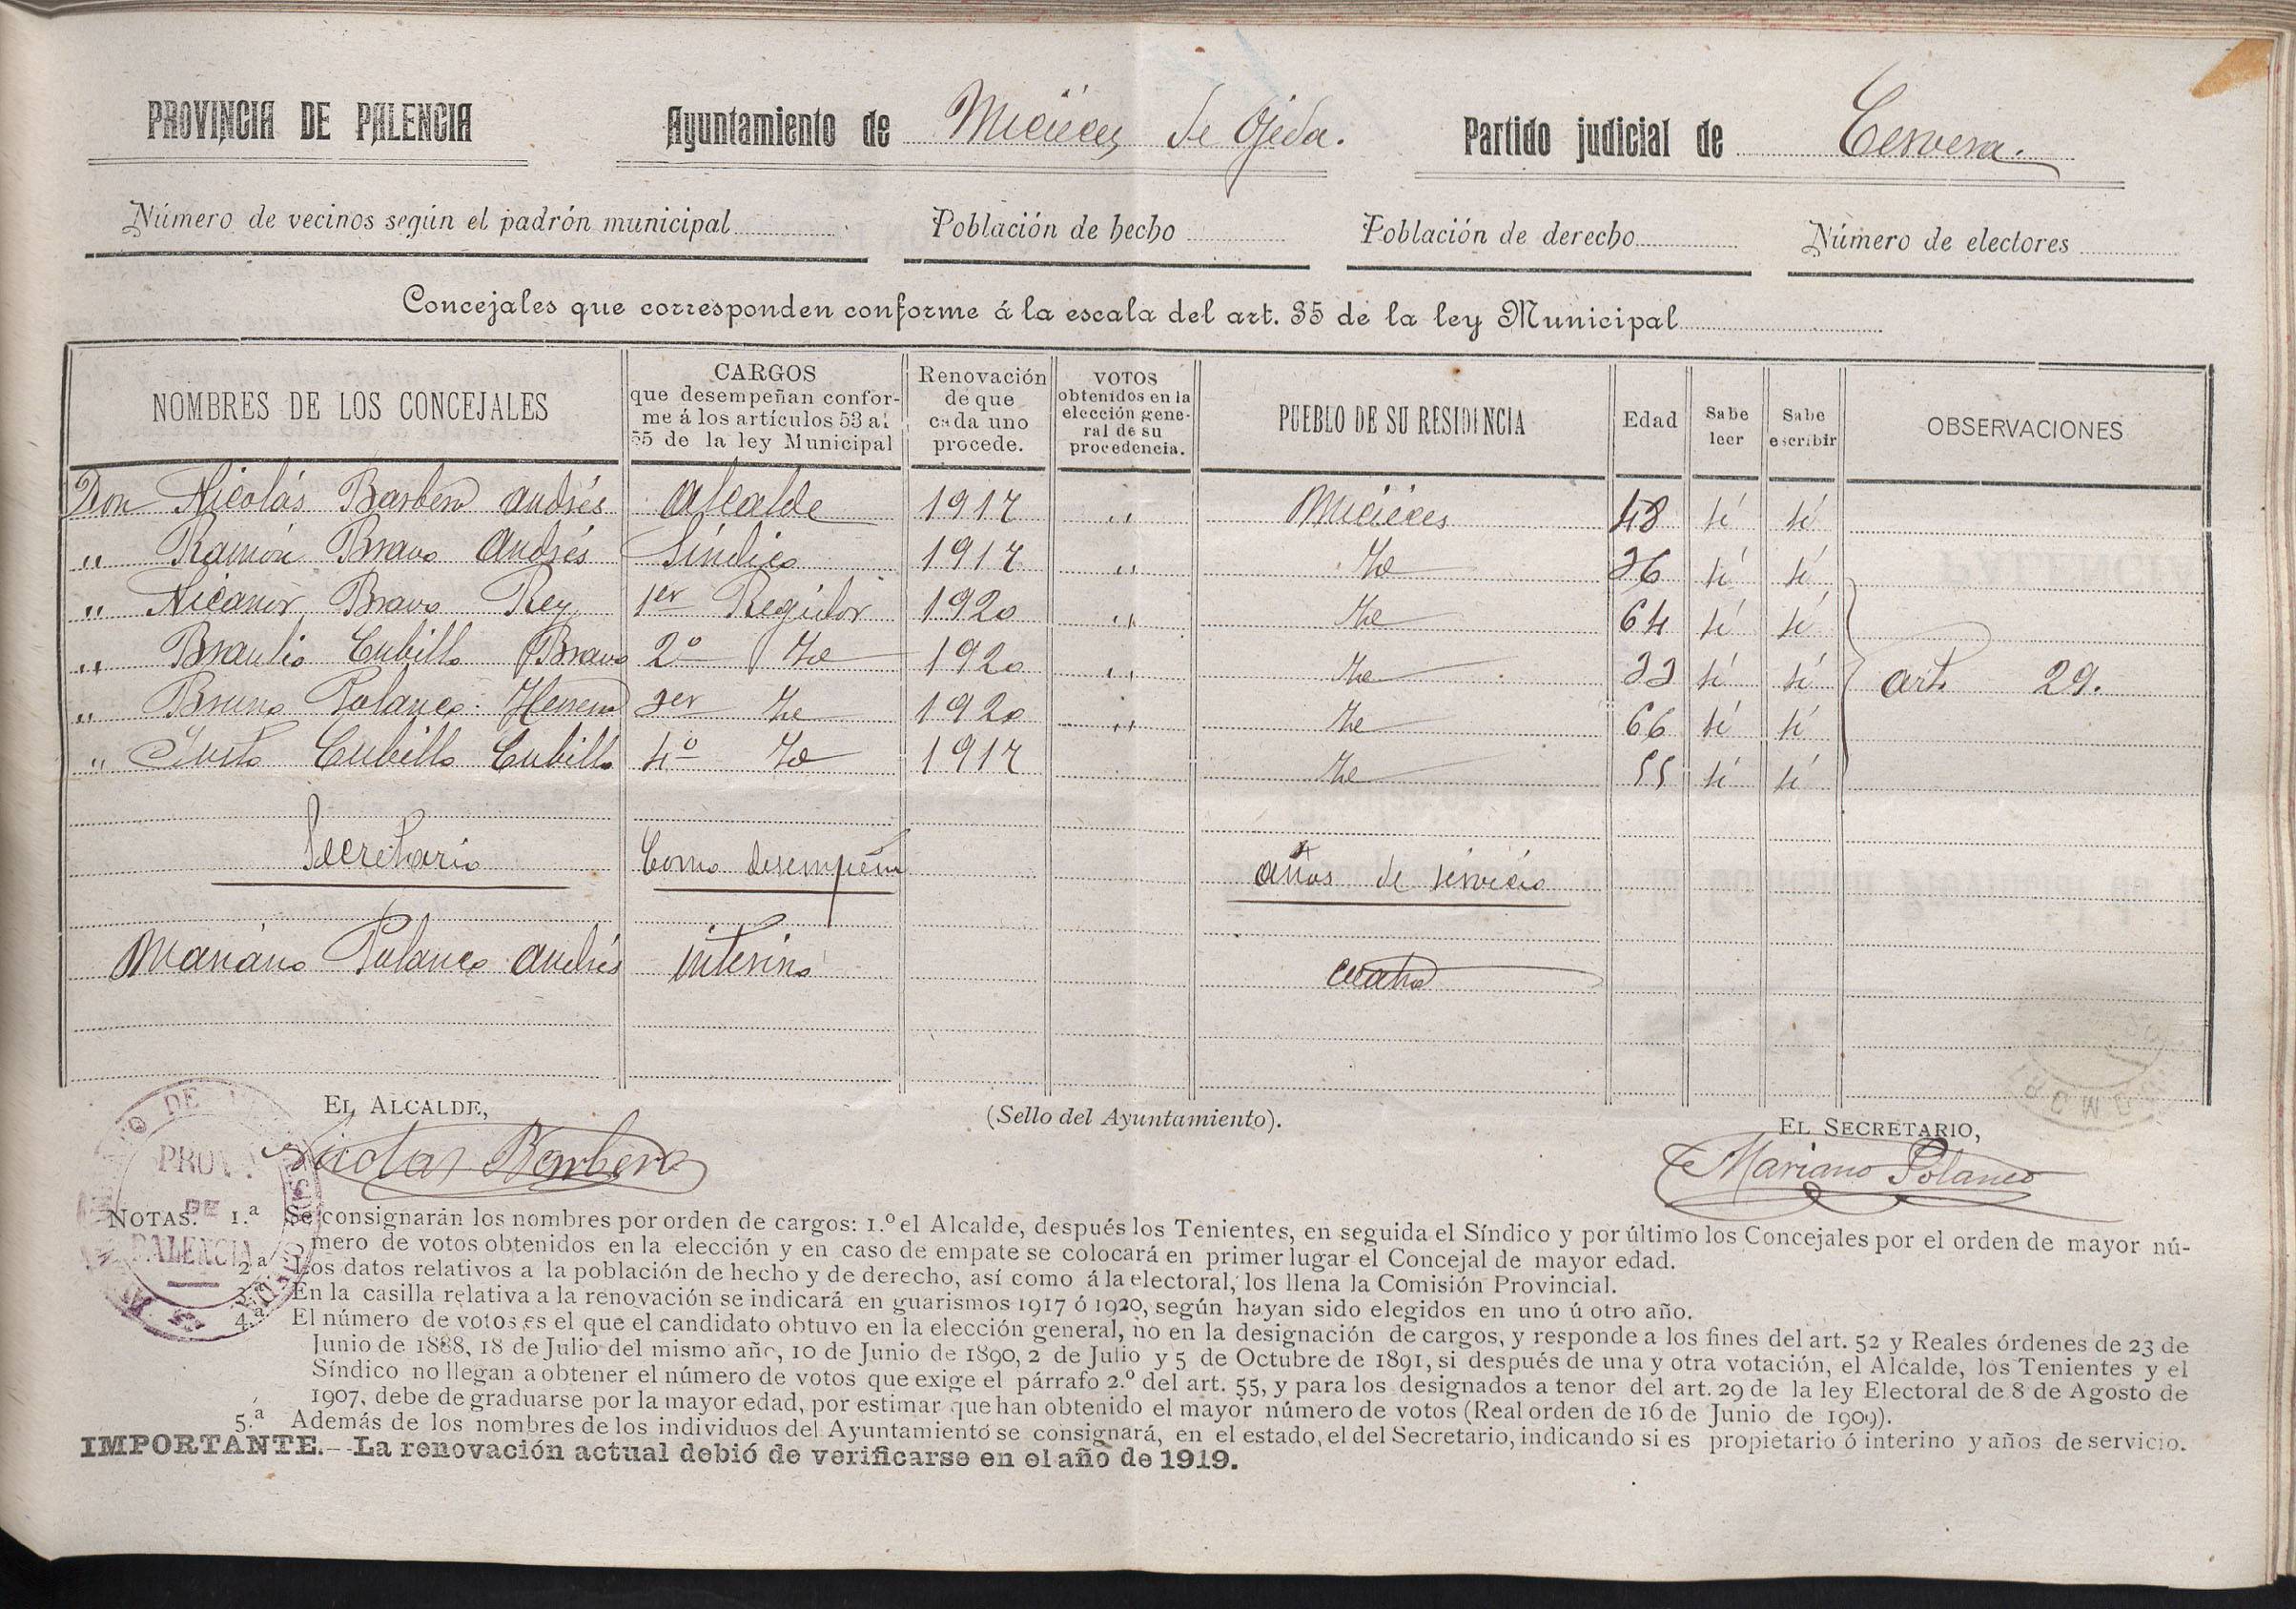 PROVINCIA DE PALENCIA Ayuntamiento de Micieces de Ojeda. Partido judicial de Cervera.
Número de vecinos según el padrón municipal Población de hecho Población de derecho Número de electores
Concejales que corresponden conforme á la escala del art. 35 de la ley Municipal
NOMBRES DE LOS CONCEJALES
CARGOS
que desempeñan confor-
me á los artículos 53 al
55 de la ley Municipal
Renovación
de que
cada uno
procede.
VOTOS
obtenidos en la
elección gene-
ral de su
procedencia.
PUEBLO DE SU RESIDENCIA
Edad
Sabe
leer
Sabe
escribir
OBSERVACIONES
Don Nicolás Barbero Andrés Alcalde 1917 " Micieces 48 sí sí
" Ramón Bravo Andrés Síndico 1917 " Id 36 sí sí
" Nicanor Bravo Rey 1er Regidor 1920 " Id 64 sí sí
" Braulio Cubillo Bravo 2º Id 1920 " Id 33 sí sí art. 29.
" Bruno Polanco Herrero 3er Id 1920 " Id 66 sí sí
" Justo Cubillo Cubillo 4º Id 1917 Id 55 sí sí
Secretario Como desempeña años de servicio
Mariano Polanco Andrés interino cuatro
EL ALCALDE, (Sello del Ayuntamiento). EL SECRETARIO,
Nicolas Barbero Mariano Polanco
PROV.A
DE
PALENCIA
NOTAS. 1.ª Se consignarán los nombres por orden de cargos: 1.º el Alcalde, después los Tenientes, en seguida el Síndico y por último los Concejales por el orden de mayor nú-
mero de votos obtenidos en la elección y en caso de empate se colocará en primer lugar el Concejal de mayor edad.
2.ª Los datos relativos a la población de hecho y de derecho, así como á la electoral, los llena la Comisión Provincial.
3.ª En la casilla relativa a la renovación se indicará en guarismos 1917 ó 1920, según hayan sido elegidos en uno ú otro año.
4.ª El número de votos es el que el candidato obtuvo en la elección general, no en la designación de cargos, y responde a los fines del art. 52 y Reales órdenes de 23 de
Junio de 1888, 18 de Julio del mismo año, 10 de Junio de 1890, 2 de Julio y 5 de Octubre de 1891, si después de una y otra votación, el Alcalde, los Tenientes y el
Síndico no llegan a obtener el número de votos que exige el párrafo 2.º del art. 55, y para los designados a tenor del art. 29 de la ley Electoral de 8 de Agosto de
1907, debe de graduarse por la mayor edad, por estimar que han obtenido el mayor número de votos (Real orden de 16 de Junio de 1909).
5.ª Además de los nombres de los individuos del Ayuntamiento se consignará, en el estado, el del Secretario, indicando si es propietario ó interino y años de servicio.
IMPORTANTE.—La renovación actual debió de verificarse en el año de 1919.